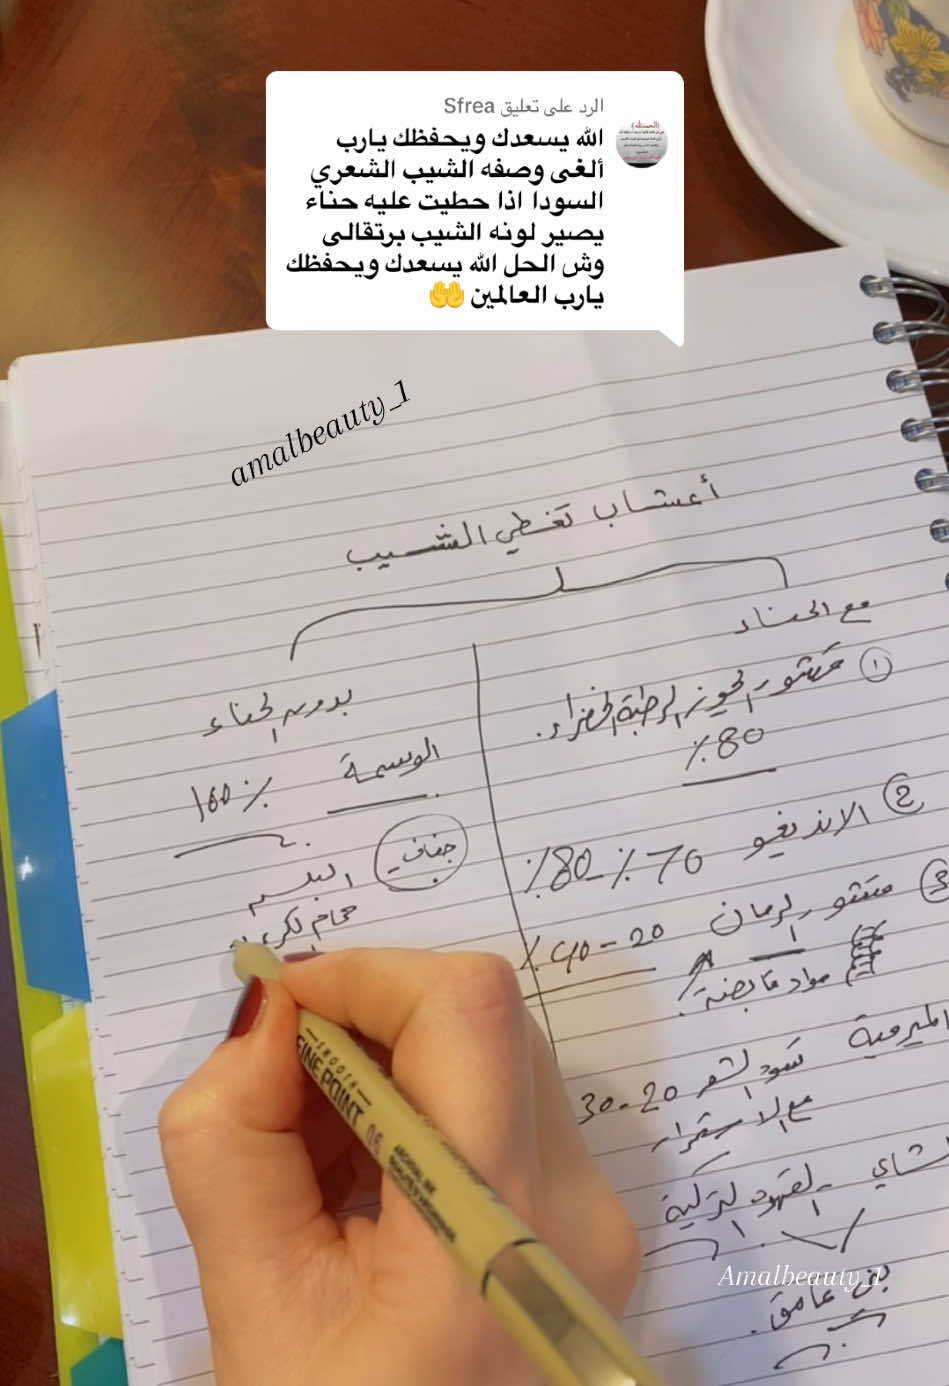 الرد على تعليق Sfrea
الله يسعدك ويحفظك يارب
ألغى وصفه الشيب الشعري
السودا اذا حطيت عليه حناء
يصير لونه الشيب برتقالى
وش الحل الله يسعدك ويحفظك
يارب العالمين 🤲
amalbeauty_1
أعشاب تغطي الشيب
مع الحناء
① قشور الجوز الرطبة الخضراء.
80٪
② الانديغو 70٪-80٪
③ قشور الرمان 20-40٪
مواد قابضة.
الميرمية تسود الشعر 20-30
مع الاستمرار
الشاي القهوة التركية
Amalbeauty_1
بني غامق.
بدون الحناء
الوسمة 100٪
جفاف
البلسم
حمام الكريم
SMOOTH
FINE POINT 0.6